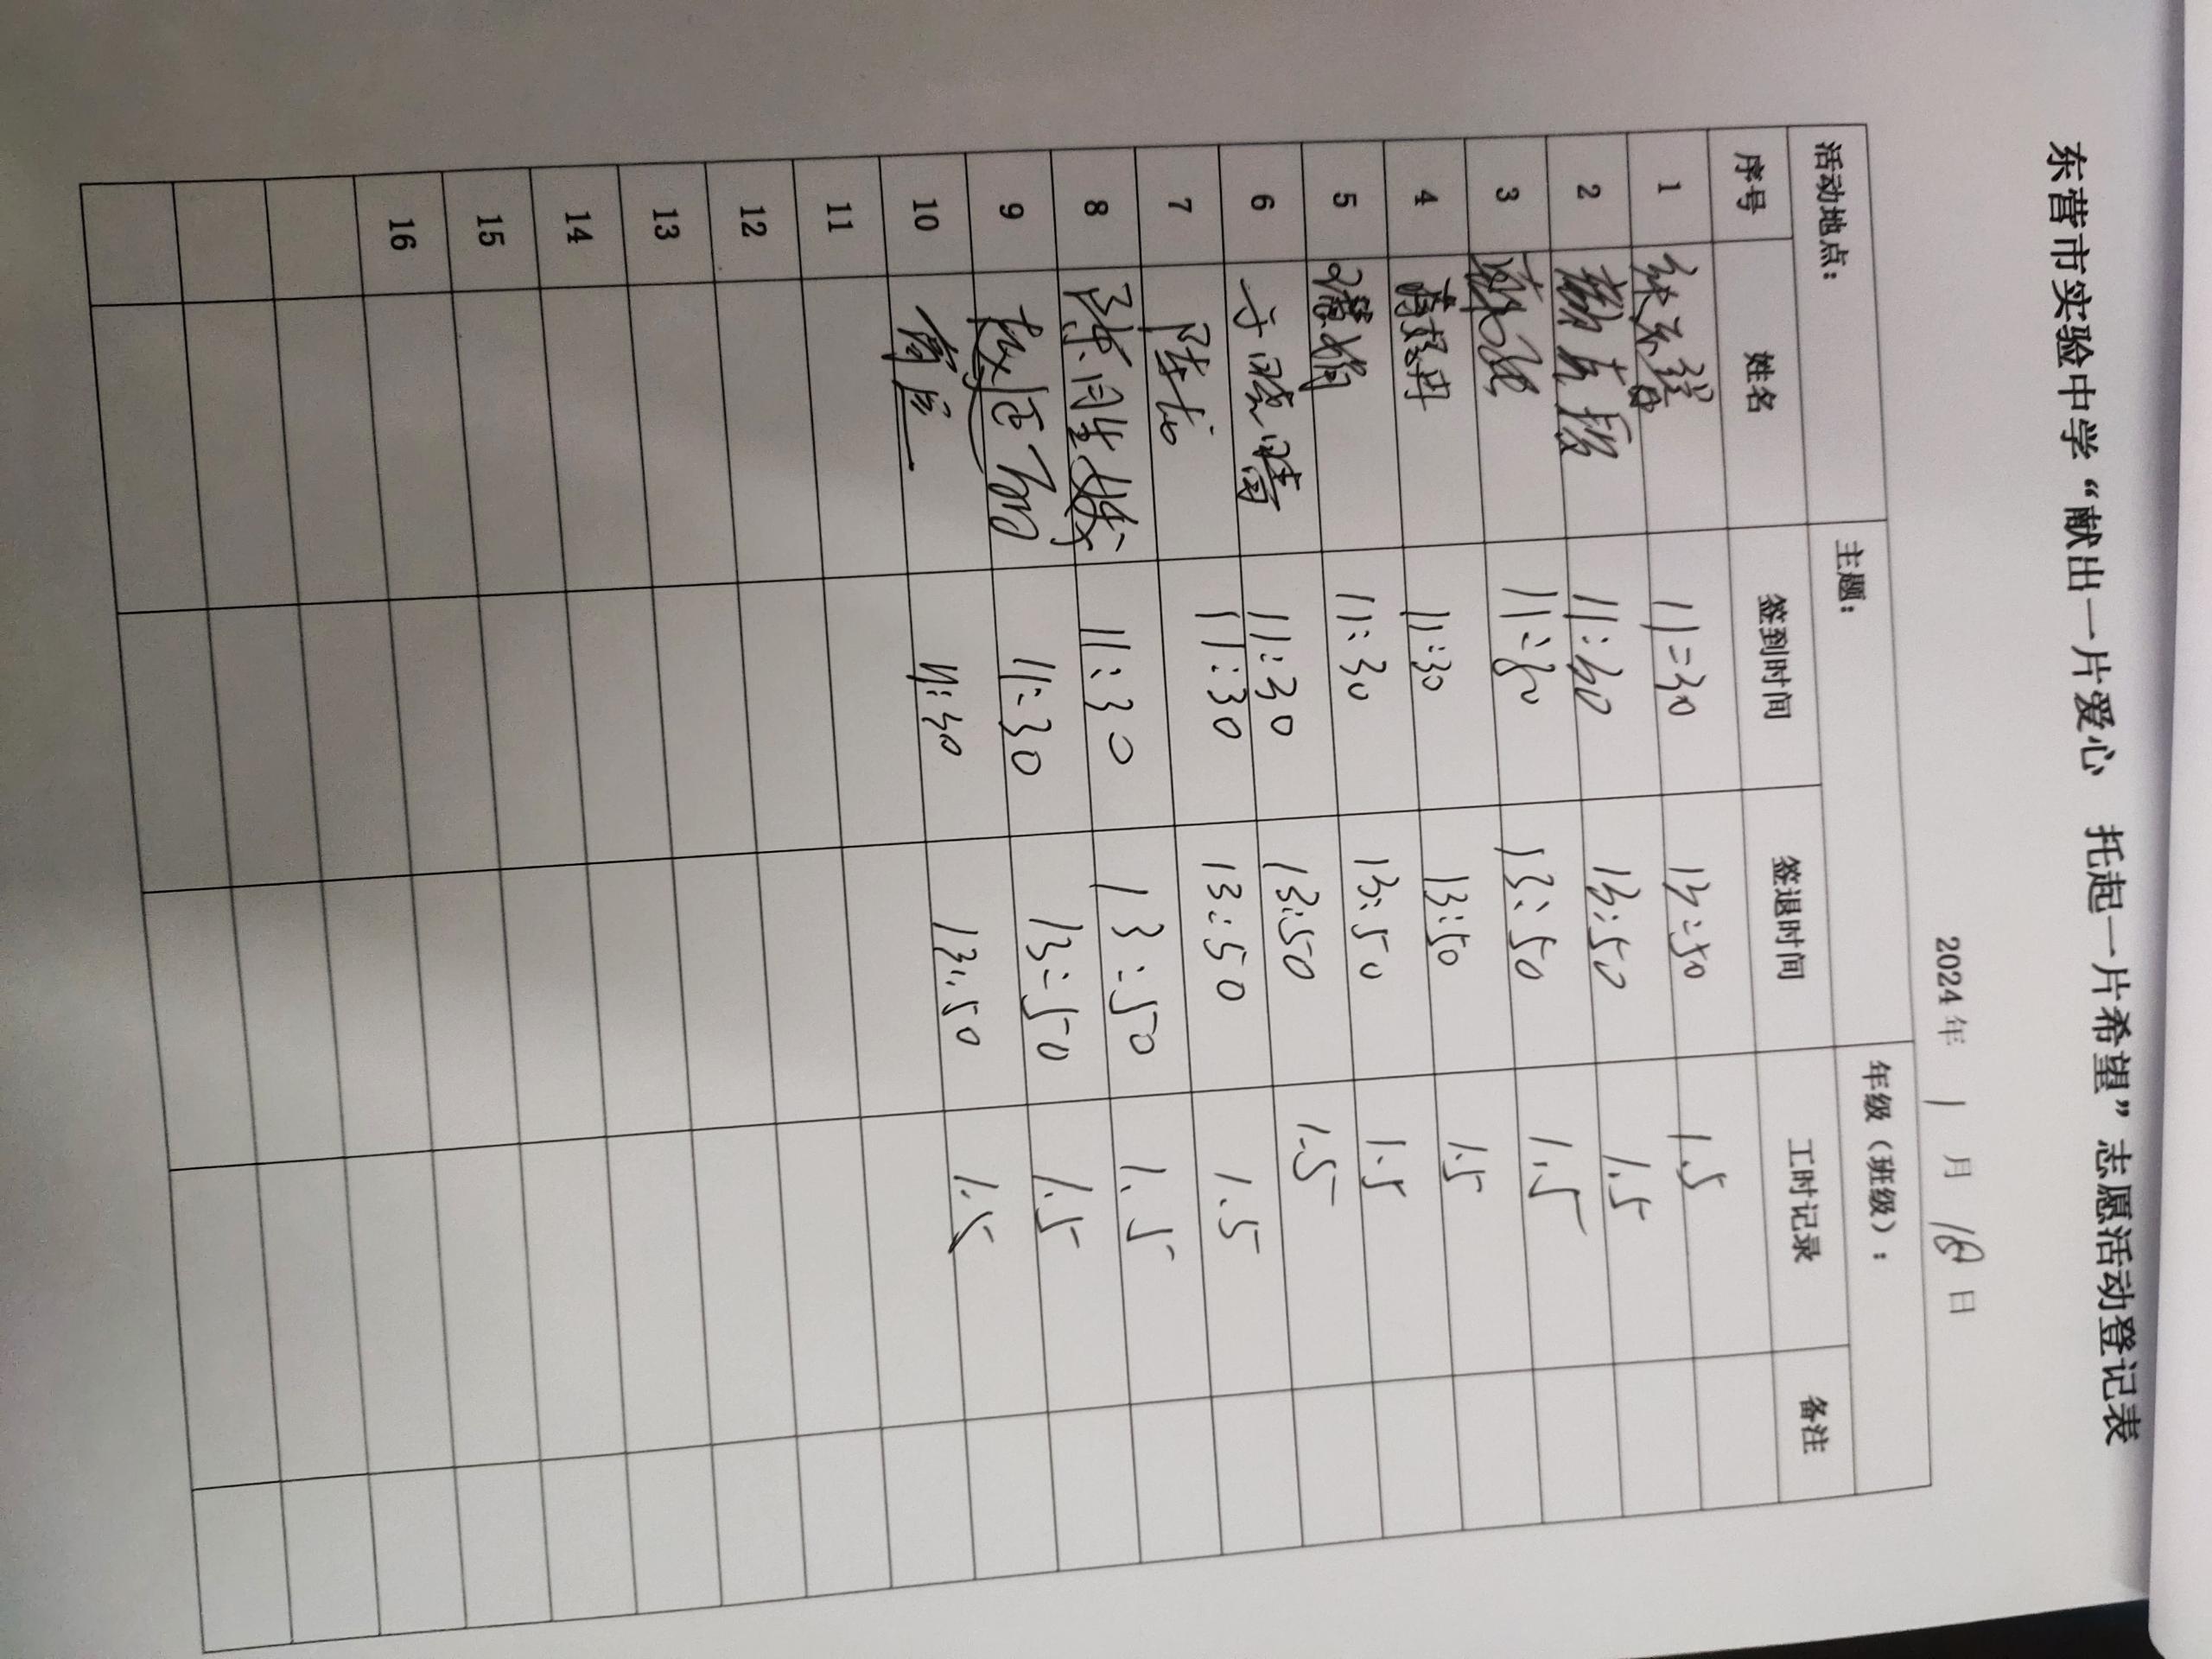 东营市实验中学“献出一片爱心　托起一片希望”志愿活动登记表
2024年 1 月 18 日
活动地点： 主题： 年级（班级）：
序号 姓名 签到时间 签退时间 工时记录 备注
1 11:30 13:50 1.5
2 11:30 13:50 1.5
3 11:30 13:50 1.5
4 11:30 13:50 1.5
5 11:30 13:50 1.5
6 11:30 13:50 1.5
7 11:30 13:50 1.5
8 11:30 13:50 1.5
9 11:30 13:50 1.5
10 11:30 13:50 1.5
11
12
13
14
15
16